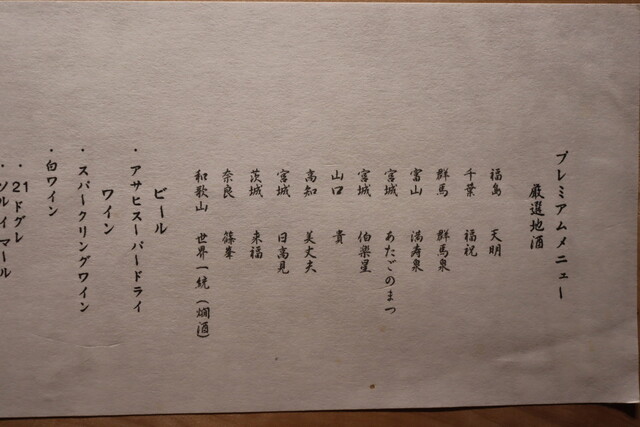 プレミアムメニュー
厳選地酒
福島 天明
千葉 福祝
群馬 群馬泉
富山 満寿泉
宮城 あたごのまつ
宮城 伯楽星
山口 貴
高知 美丈夫
宮城 日高見
茨城 来福
奈良 篠峯
和歌山 世界一統(燗酒)
ビール
・アサヒスーパードライ
ワイン
・スパークリングワイン
・白ワイン
・21ドグレ
・ソルイマール